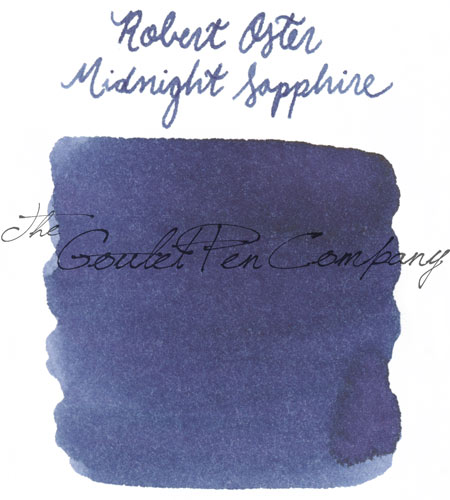 Robert Oster
Midnight Sapphire
The Goulet Pen Company